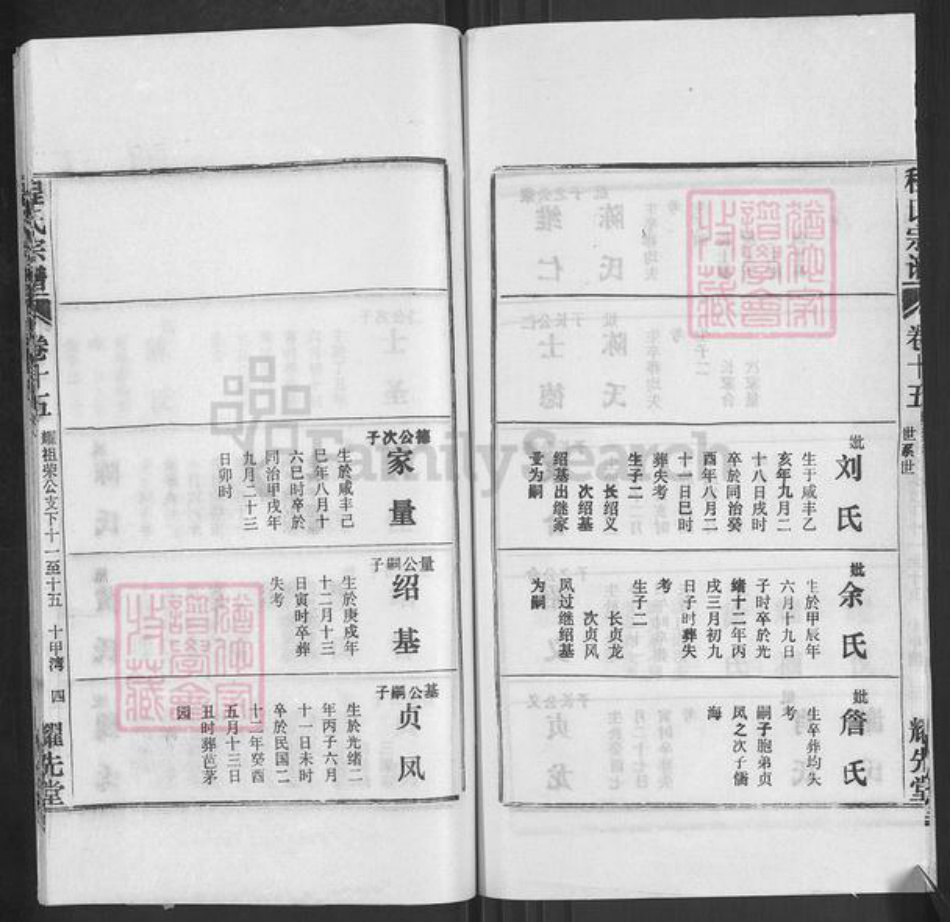 程氏宗谱
卷十五
世系世
耀先堂
妣
刘氏
生于咸丰乙
亥年九月二
十八日戌时
卒於同治癸
酉年八月二
十一日巳时
葬失考
生子二
长绍义
次绍基
绍基出继家
量为嗣
妣
余氏
生於甲辰年
六月十九日
子时卒於光
绪十二年丙
戌三月初九
日子时葬失
考
生子二
长贞龙
次贞风
风过继绍基
为嗣
妣
詹氏
生卒葬均失
考
嗣子胞弟贞
风之次子儒
海
德公次子
家量
生於咸丰己
巳年八月十
六巳时卒於
同治甲戌年
九月二十三
日卯时
量公嗣子
绍基
生於庚戌年
十二月十三
日寅时卒葬
失考
基公嗣子
贞凤
生於光绪二
年丙子六月
十一日未时
卒於民国二
十二年癸酉
五月十三日
丑时葬芭茅
园
程氏宗谱
卷十五
耀祖荣公支下十一至十五
十甲湾
四
耀先堂
FamilySearch